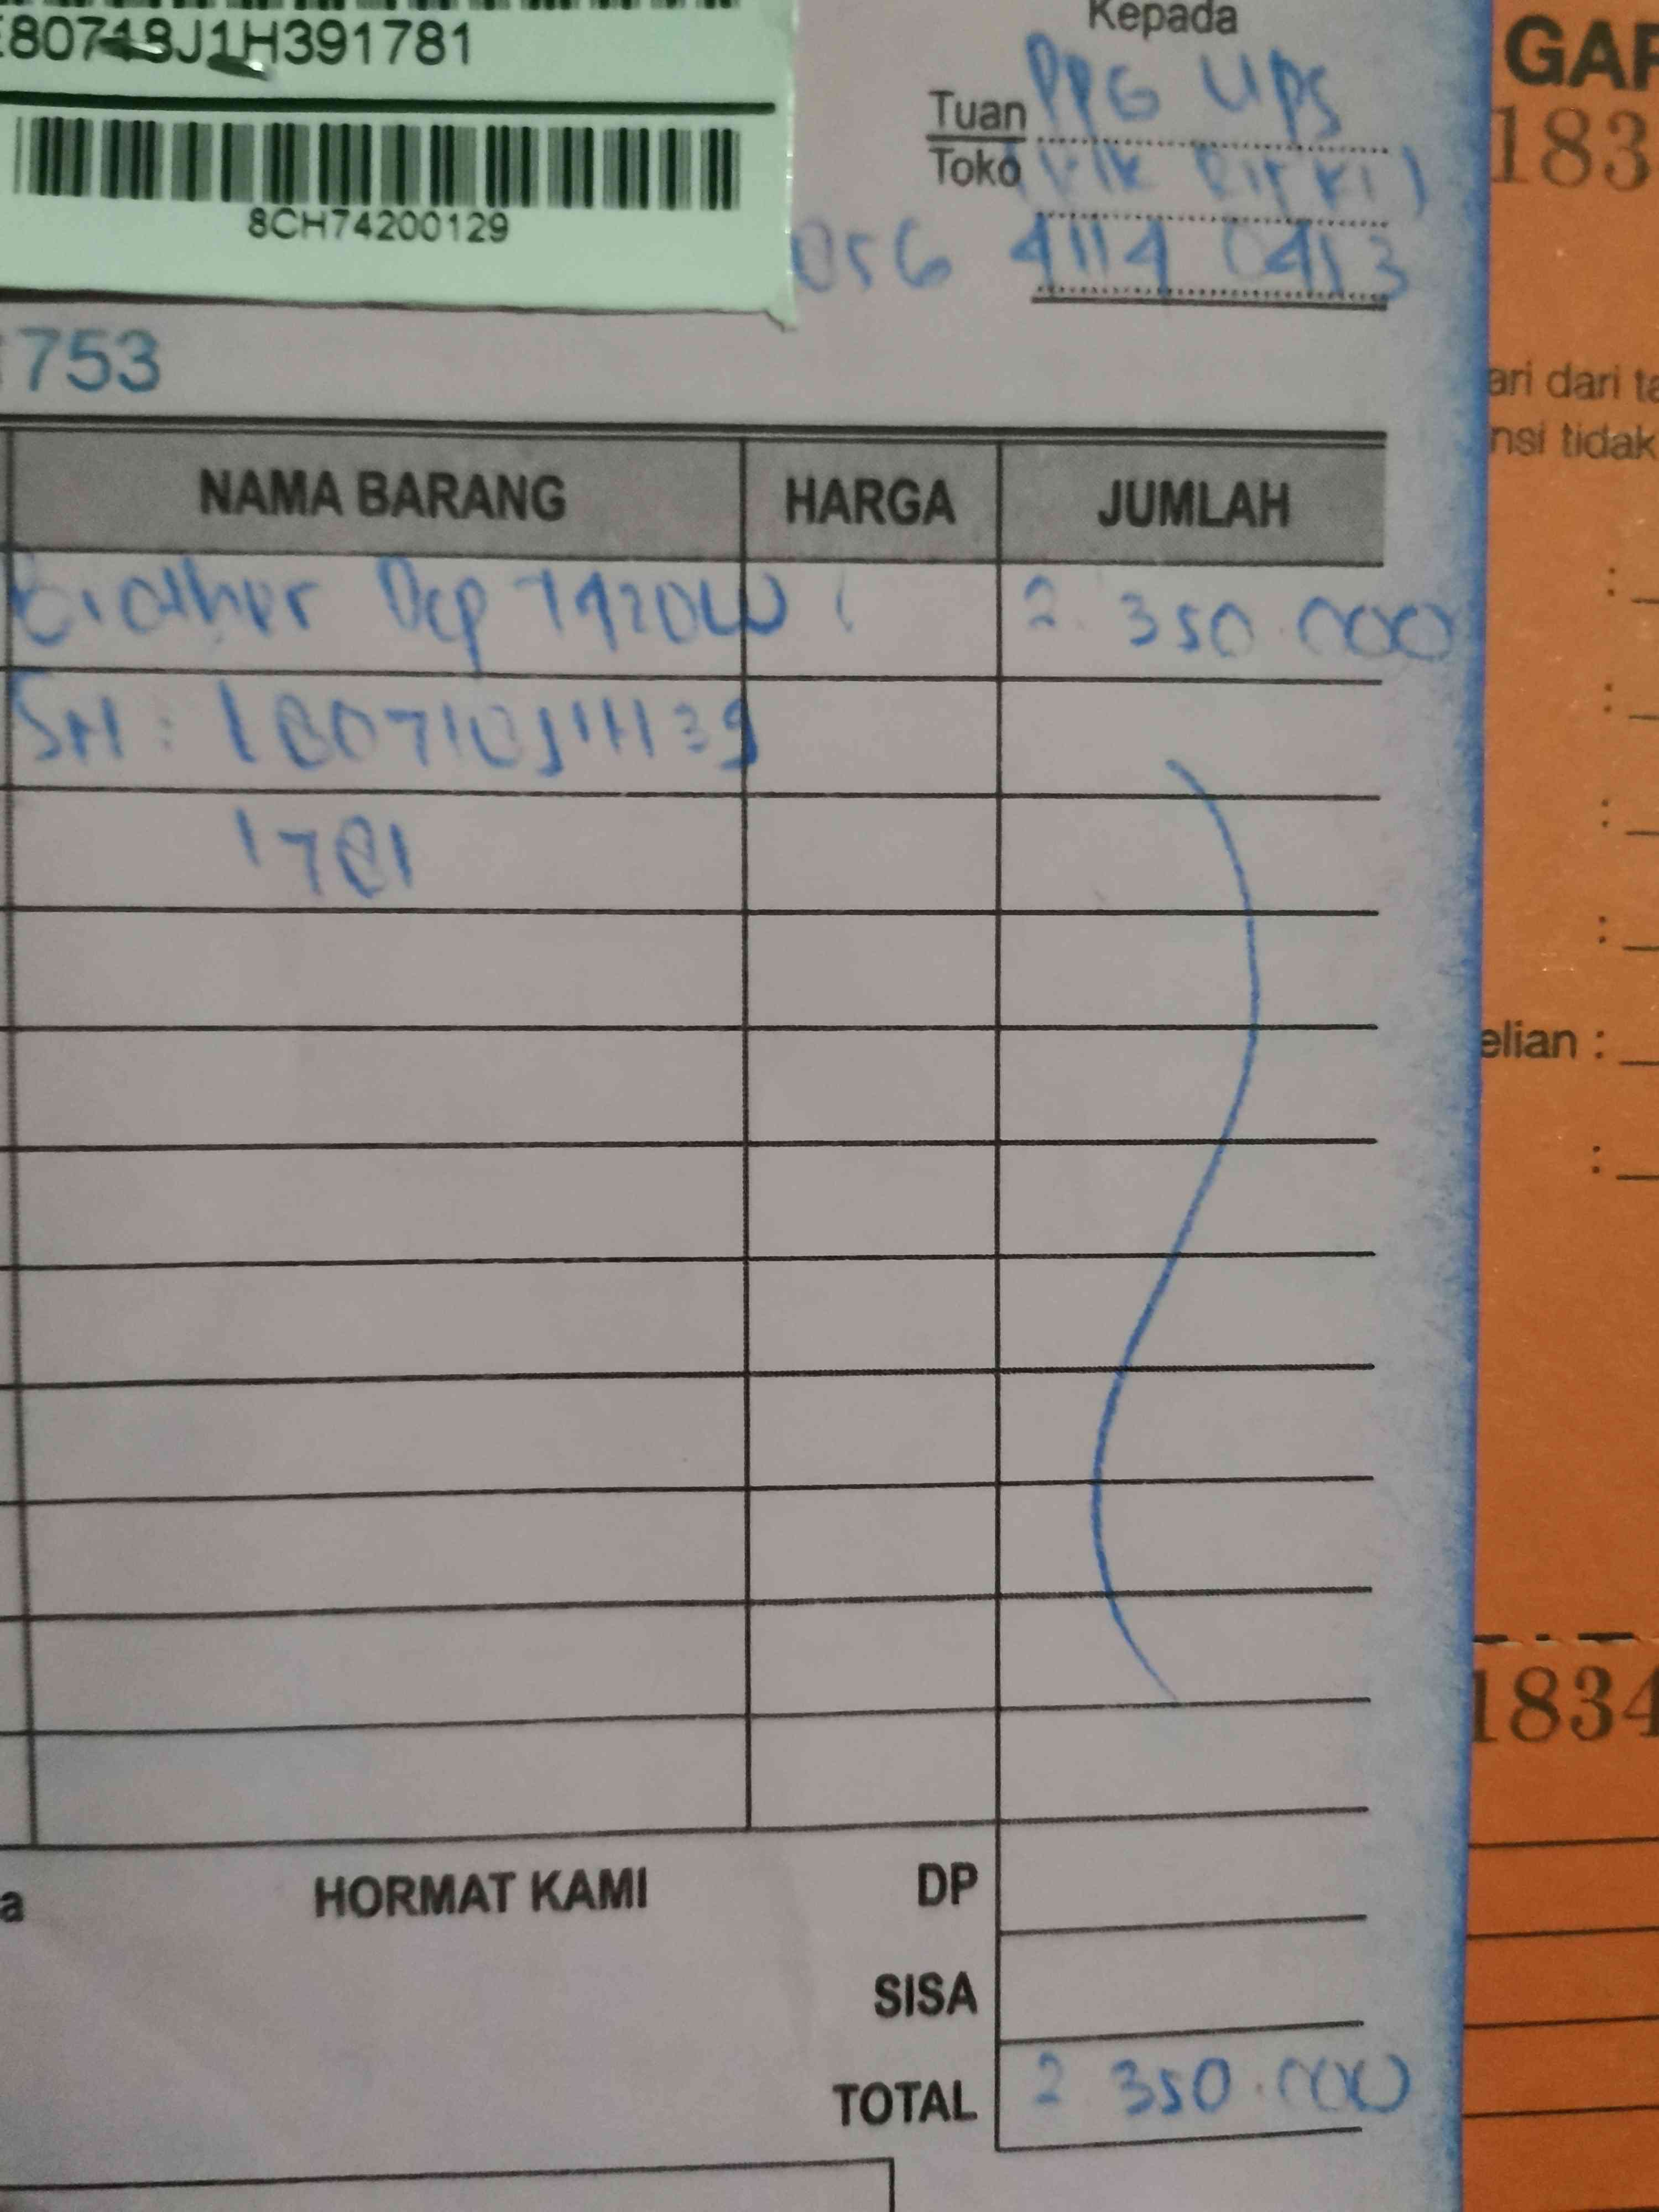 E80718J1H391781
8CH74200129
Kepada
Tuan PPG UPS
Toko
056 4114 0413
753
NAMA BARANG HARGA JUMLAH
Brother Dcp T420W 2.350.000
SN : E80718J1H39
1781
HORMAT KAMI DP
SISA
TOTAL 2.350.000
GAR
183
ari dari ta
nsi tidak
elian :
1834